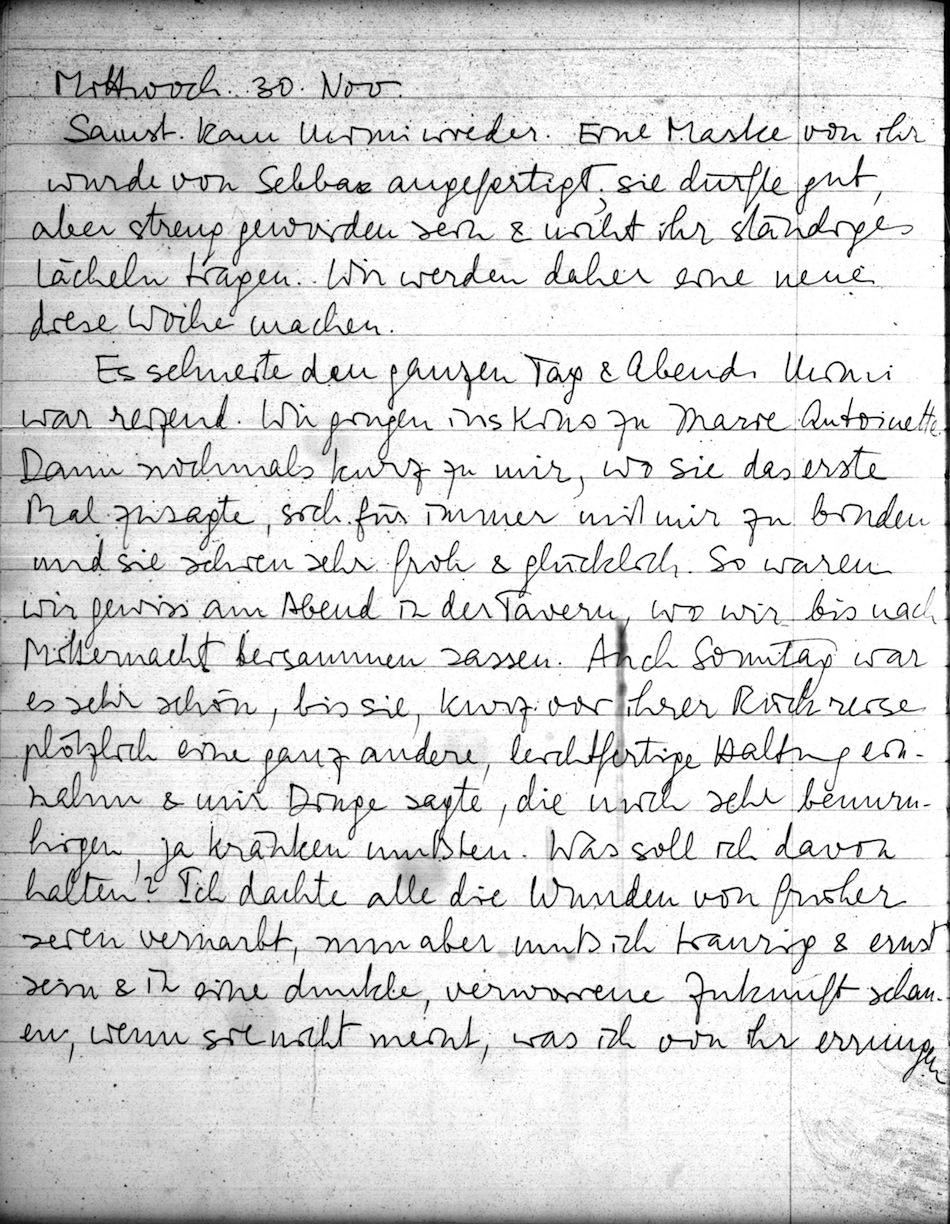 Mittwoch. 30. Nov.
Samst. kam Mimi wieder. Eine Maske von ihr
wurde von angefertigt, sie dürfte gut,
aber streng geworden sein & nicht ihr ständiges
Lächeln tragen. Wir werden daher eine neue
diese Woche machen.
Es schneite den ganzen Tag & Abend. Mimi
war reizend. Wir gingen ins Kino zu Marie Antoinette.
Dann nochmals kurz zu mir, wo sie das erste
Mal zusagte, sich für immer mit mir zu binden
und sie schien sehr froh & glücklich. So waren
wir gewiss am Abend in der Tavern, wo wir bis nach
Mitternacht beisammen sassen. Auch Sonntag war
es sehr schön, bis sie, kurz vor ihrer Rückreise
plötzlich eine ganz andere, leichtfertige Haltung ein-
nahm & mir Dinge sagte, die mich sehr beunru-
higen, ja kränken mußten. Was soll ich davon
halten? Ich dachte alle die Wunden von früher
seien vernarbt, nun aber muß ich traurig & ernst
sein & in eine dunkle, verworrene Zukunft schau-
en, wenn sie nicht meint, was ich von ihr errungen